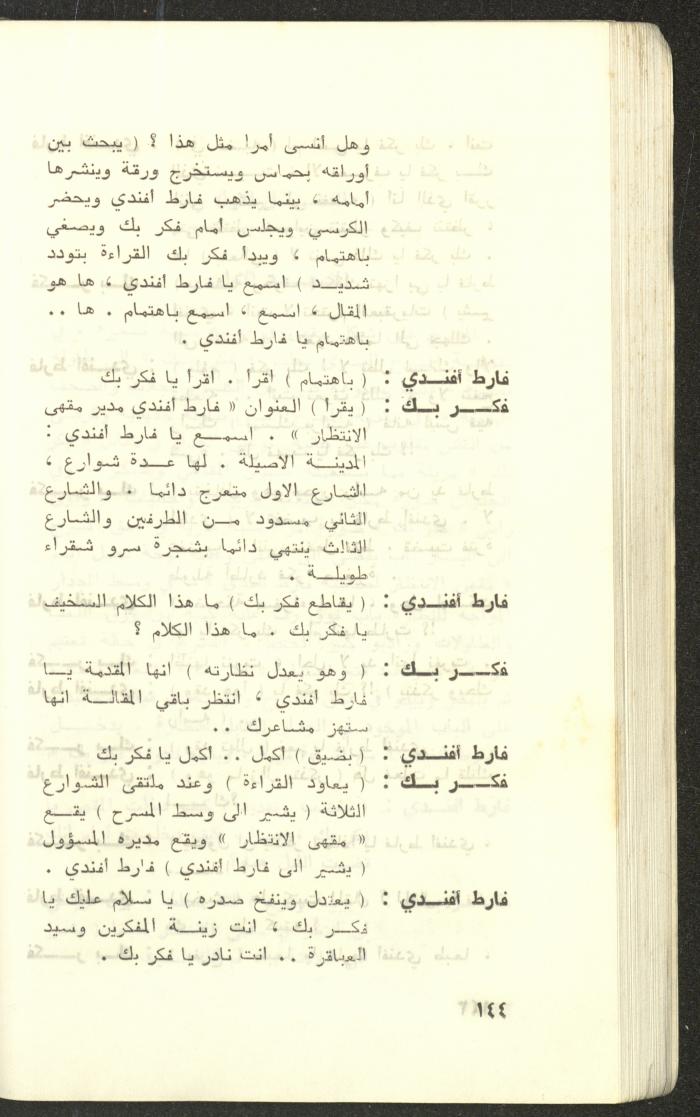 وهل أنسى أمرا مثل هذا ؟ ( يبحث بين
أوراقه بحماس ويستخرج ورقة وينشرها
أمامه ، بينما يذهب فارط أفندي ويحضر
الكرسي ويجلس أمام فكر بك ويصغي
باهتمام ، ويبدأ فكر بك القراءة بتودد
شديــد ) اسمع يا فارط أفندي ، ها هو
المقال ، اسمع ، اسمع باهتمام . ها ..
باهتمام يا فارط أفندي .
فارط أفنــدي : ( باهتمام ) اقرأ . اقرأ يا فكر بك
فكـــر بــك : ( يقرأ ) العنوان « فارط أفندي مدير مقهى
الانتظار » . اسمــع يا فارط أفندي :
المدينــة الاصيلة . لها عــدة شوارع ،
الشارع الاول متعرج دائما . والشارع
الثاني مسدود مــن الطرفين والشارع
الثالث ينتهي دائما بشجرة سرو شقراء
طويلــة .
فارط أفنــدي : ( يقاطع فكر بك ) ما هذا الكلام السخيف
يا فكر بك . ما هذا الكلام ؟
فكـــر بــك : ( وهو يعدل نظارته ) انها المقدمة يــا
فارط أفندي ، انتظر باقي المقالــة انها
ستهز مشاعرك ..
فارط أفنــدي : ( بضيق ) أكمل .. أكمل يا فكر بك
فكـــر بــك : ( يعاود القراءة ) وعند ملتقى الشوارع
الثلاثة ( يشير الى وسط المسرح ) يقــع
« مقهى الانتظار » ويقع مديره المسؤول
( يشير الى فارط أفندي ) فارط أفندي .
فارط أفنــدي : ( يعتدل وينفخ صدره ) يا سلام عليك يا
فكــر بك ، انت زينــة المفكرين وسيد
العباقرة .. انت نادر يا فكر بك .
١٤٤